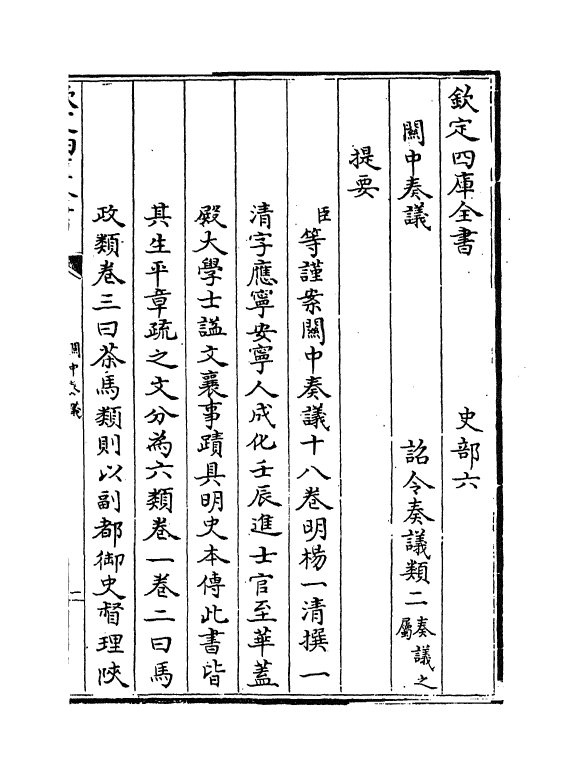 欽定四庫全書　史部六
關中奏議　詔令奏議類二奏議之屬
提要
臣等謹案關中奏議十八卷明楊一清撰一
清字應寧安寧人成化壬辰進士官至華蓋
殿大學士謚文襄事蹟具明史本傳此書皆
其生平章疏之文分為六類卷一卷二曰馬
政類卷三曰茶馬類則以副都御史督理陜
關中奏議
一